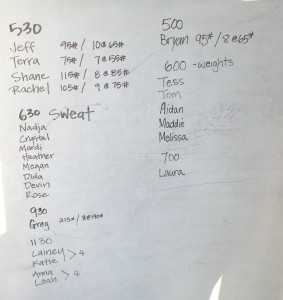 530
Jeff 95# / 10@65#
Terra 75# / 7@55#
Shane 115# / 8@85#
Rachel 105# / 9@75#
630 Sweat
Nadja
Crystal
Mardi
Heather
Megan
Dida
Devin
Rose
930
Greg 215# / 8@190#
1130
Lainey
Katie > 4
Ama
Leah > 4
500
Bryan 95# / 8@65#
600 - weights
Tess
Tom
Aidan
Maddie
Melissa
700
Laura